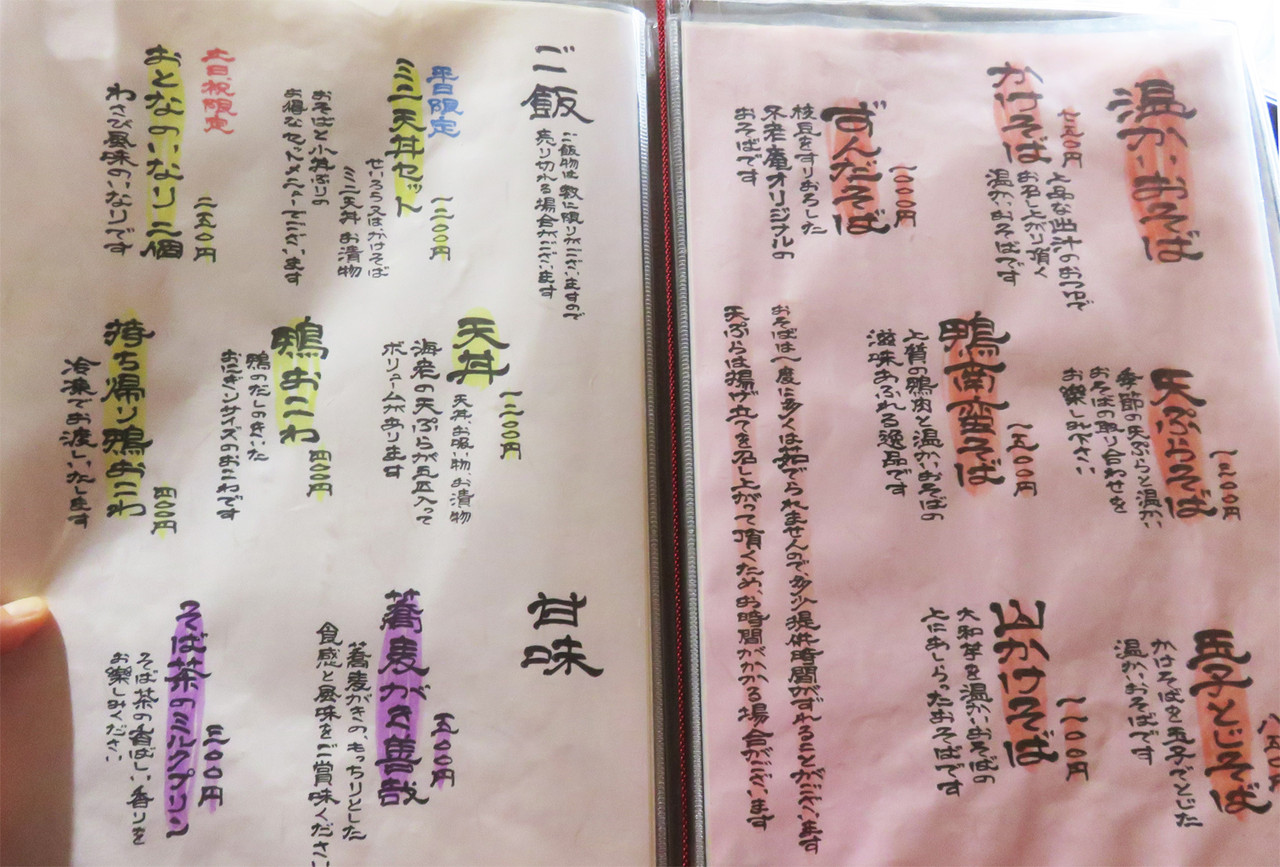 温かいおそば
かけそば
七五〇円
上品な出汁のおつゆで
お召し上がり頂く
温かいおそばです
天ぷらそば
季節の天ぷらと温かい
おそばの取り合わせを
お楽しみ下さい
玉子とじそば
八五〇円
かけそばを玉子でとじた
温かいおそばです
ずんだそば
一〇〇〇円
枝豆をすりおろした
不老庵オリジナルの
おそばです
鴨南蛮そば
一五〇〇円
上質の鴨肉と温かいおそばの
滋味あふれる逸品です
山かけそば
一一〇〇円
大和芋を温かいおそばの
上にあしらったおそばです
おそばは一度に多くは茹でられませんので、多少提供時間がずれることがございます
天ぷらは揚げ立てを召し上がって頂くため、お時間がかかる場合がございます
ご飯
ご飯物は数に限りがございますので
売り切れる場合がございます
平日限定
ミニ天丼セット
一二〇〇円
せいろ又はかけそば
ミニ天丼 お漬物
おそばと小丼ぶりの
お得なセットメニューでございます
土日祝限定
おとなのいなり二個
二五〇円
わさび風味のいなりです
天丼
一二〇〇円
天丼、お吸い物、お漬物
海老の天ぷらが五匹入って
ボリュームがあります
鴨おこわ
四〇〇円
鴨のだしのきいた
おにぎりサイズのおこわです
持ち帰り鴨おこわ
四〇〇円
冷凍でお渡しいたします
甘味
蕎麦がき善哉
五〇〇円
蕎麦がきの、もっちりとした
食感と風味をご賞味ください
そば茶のミルクプリン
三〇〇円
そば茶の香ばしい香りを
お楽しみください